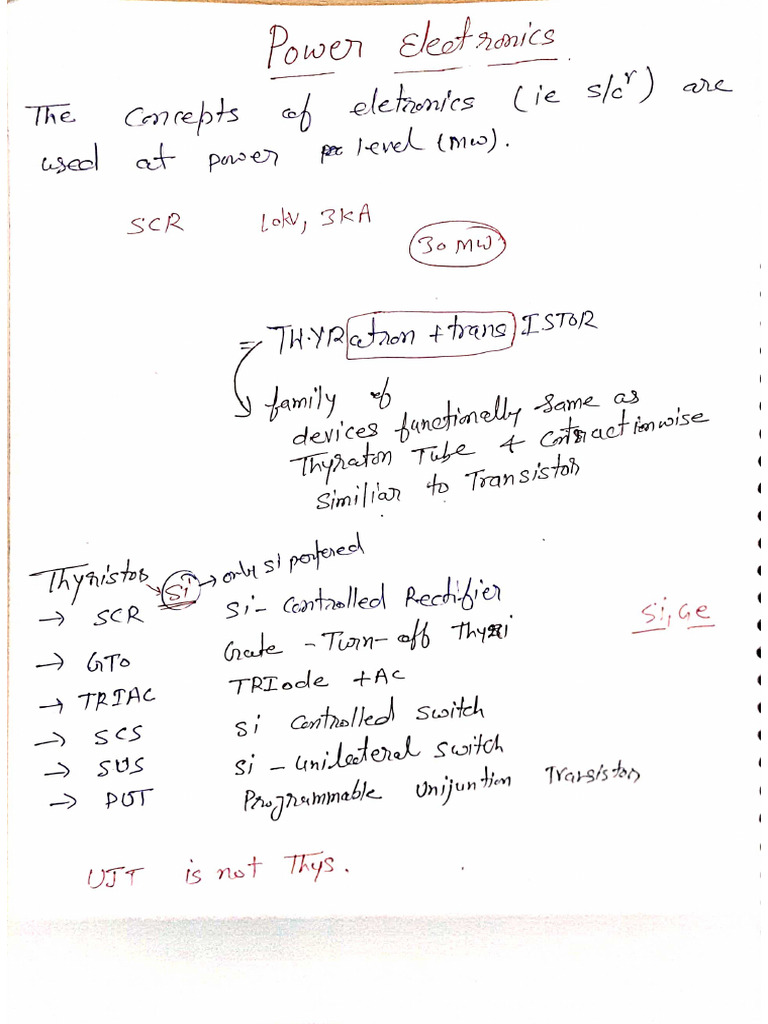 Power Electronics
The concepts of eletronics (ie s/cʳ) are
used at power level (MW).
SCR 10kV, 3KA
30 MW
= THYRatron + transISTOR
family of
devices functionally same as
Thyraton Tube & Contractionwise
Similiar to Transistor
Thyristor Si → only si perfered
→ SCR Si- Controlled Rectifier
Si, Ge
→ GTO Gate - Turn- off Thyri
→ TRIAC TRIode + AC
→ SCS Si Controlled Switch
→ SUS Si - Unilateral Switch
→ PUT Programmable Unijuntion Transistor
UJT is not Thys.